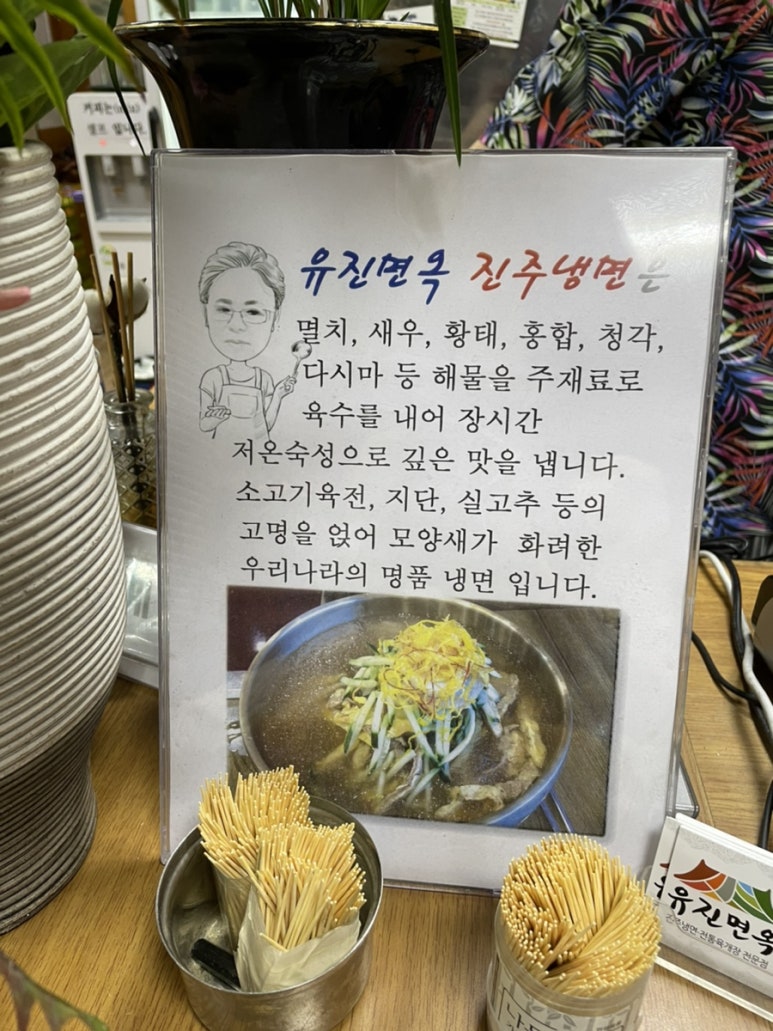 커피는(cold)
셀프 입니다.
유진면옥 진주냉면은
멸치, 새우, 황태, 홍합, 청각,
다시마 등 해물을 주재료로
육수를 내어 장시간
저온숙성으로 깊은 맛을 냅니다.
소고기육전, 지단, 실고추 등의
고명을 얹어 모양새가 화려한
우리나라의 명품 냉면 입니다.
유진면옥
진주냉면·전통육개장 전문점